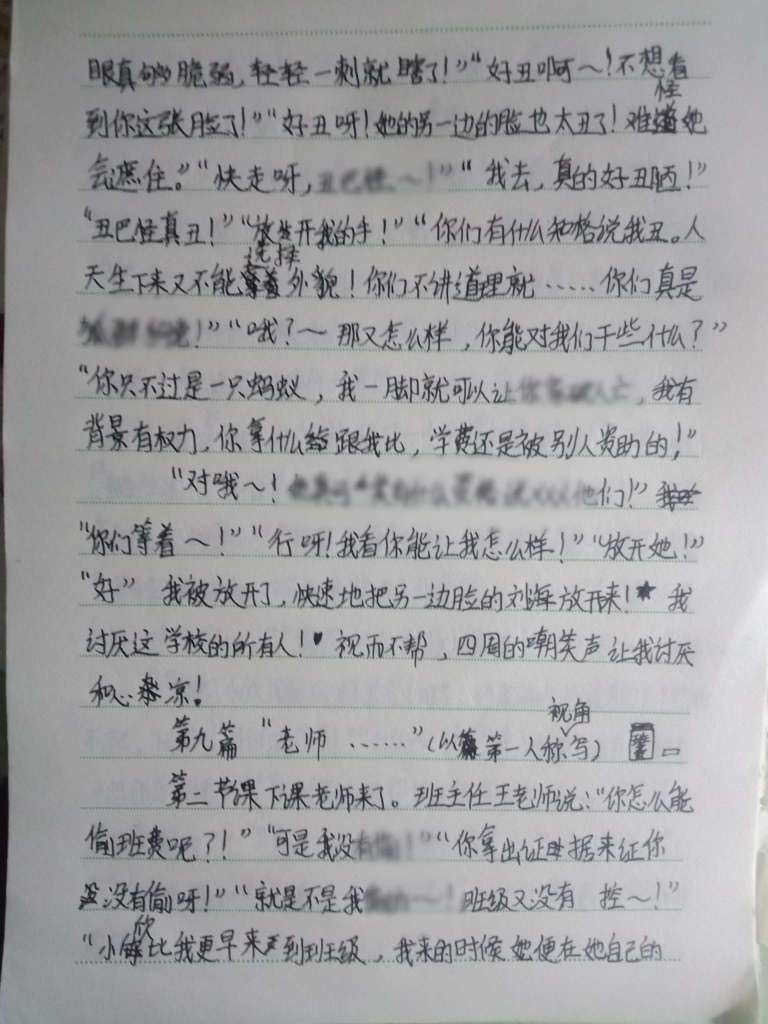 眼真够脆弱，轻轻一刺就瞎了！”“好丑啊～！不想看
到你这张脸了！”“好丑呀！她的另一边的脸也太丑了！难怪她
会遮住。”“快走呀，”“我去，真的好丑陋！”
“丑巴怪真丑！”“放开我的手！”“你们有什么知格说我丑。人
天生下来又不能选择外貌！你们不讲道理就……你们真是
！”“哦？～那又怎么样，你能对我们干些什么？”
“你只不过是一只蚂蚁，我一脚就可以让，我有
背景有权力，你拿什么跟我比，学费还是被别人资助的！”
“对哦～！他们！”
“你们等着～！”“行呀！我看你能让我怎么样！”“放开她！”
“好”我被放开了，快速地把另一边脸的刘海放下来！★我
讨厌这学校的所有人！视而不帮，四周的嘲笑声让我讨厌
和心凉！
第九篇“老师……”（以第一人称视角写）
第二节课下课老师来了。班主任王老师说：“你怎么能
偷班费呢？！”“可是我没！”“你拿出证据来证你
没有偷呀！”“就是不是我～！班级又没有控～！”
“小欣比我更早来到班级，我来的时候她便在她自己的